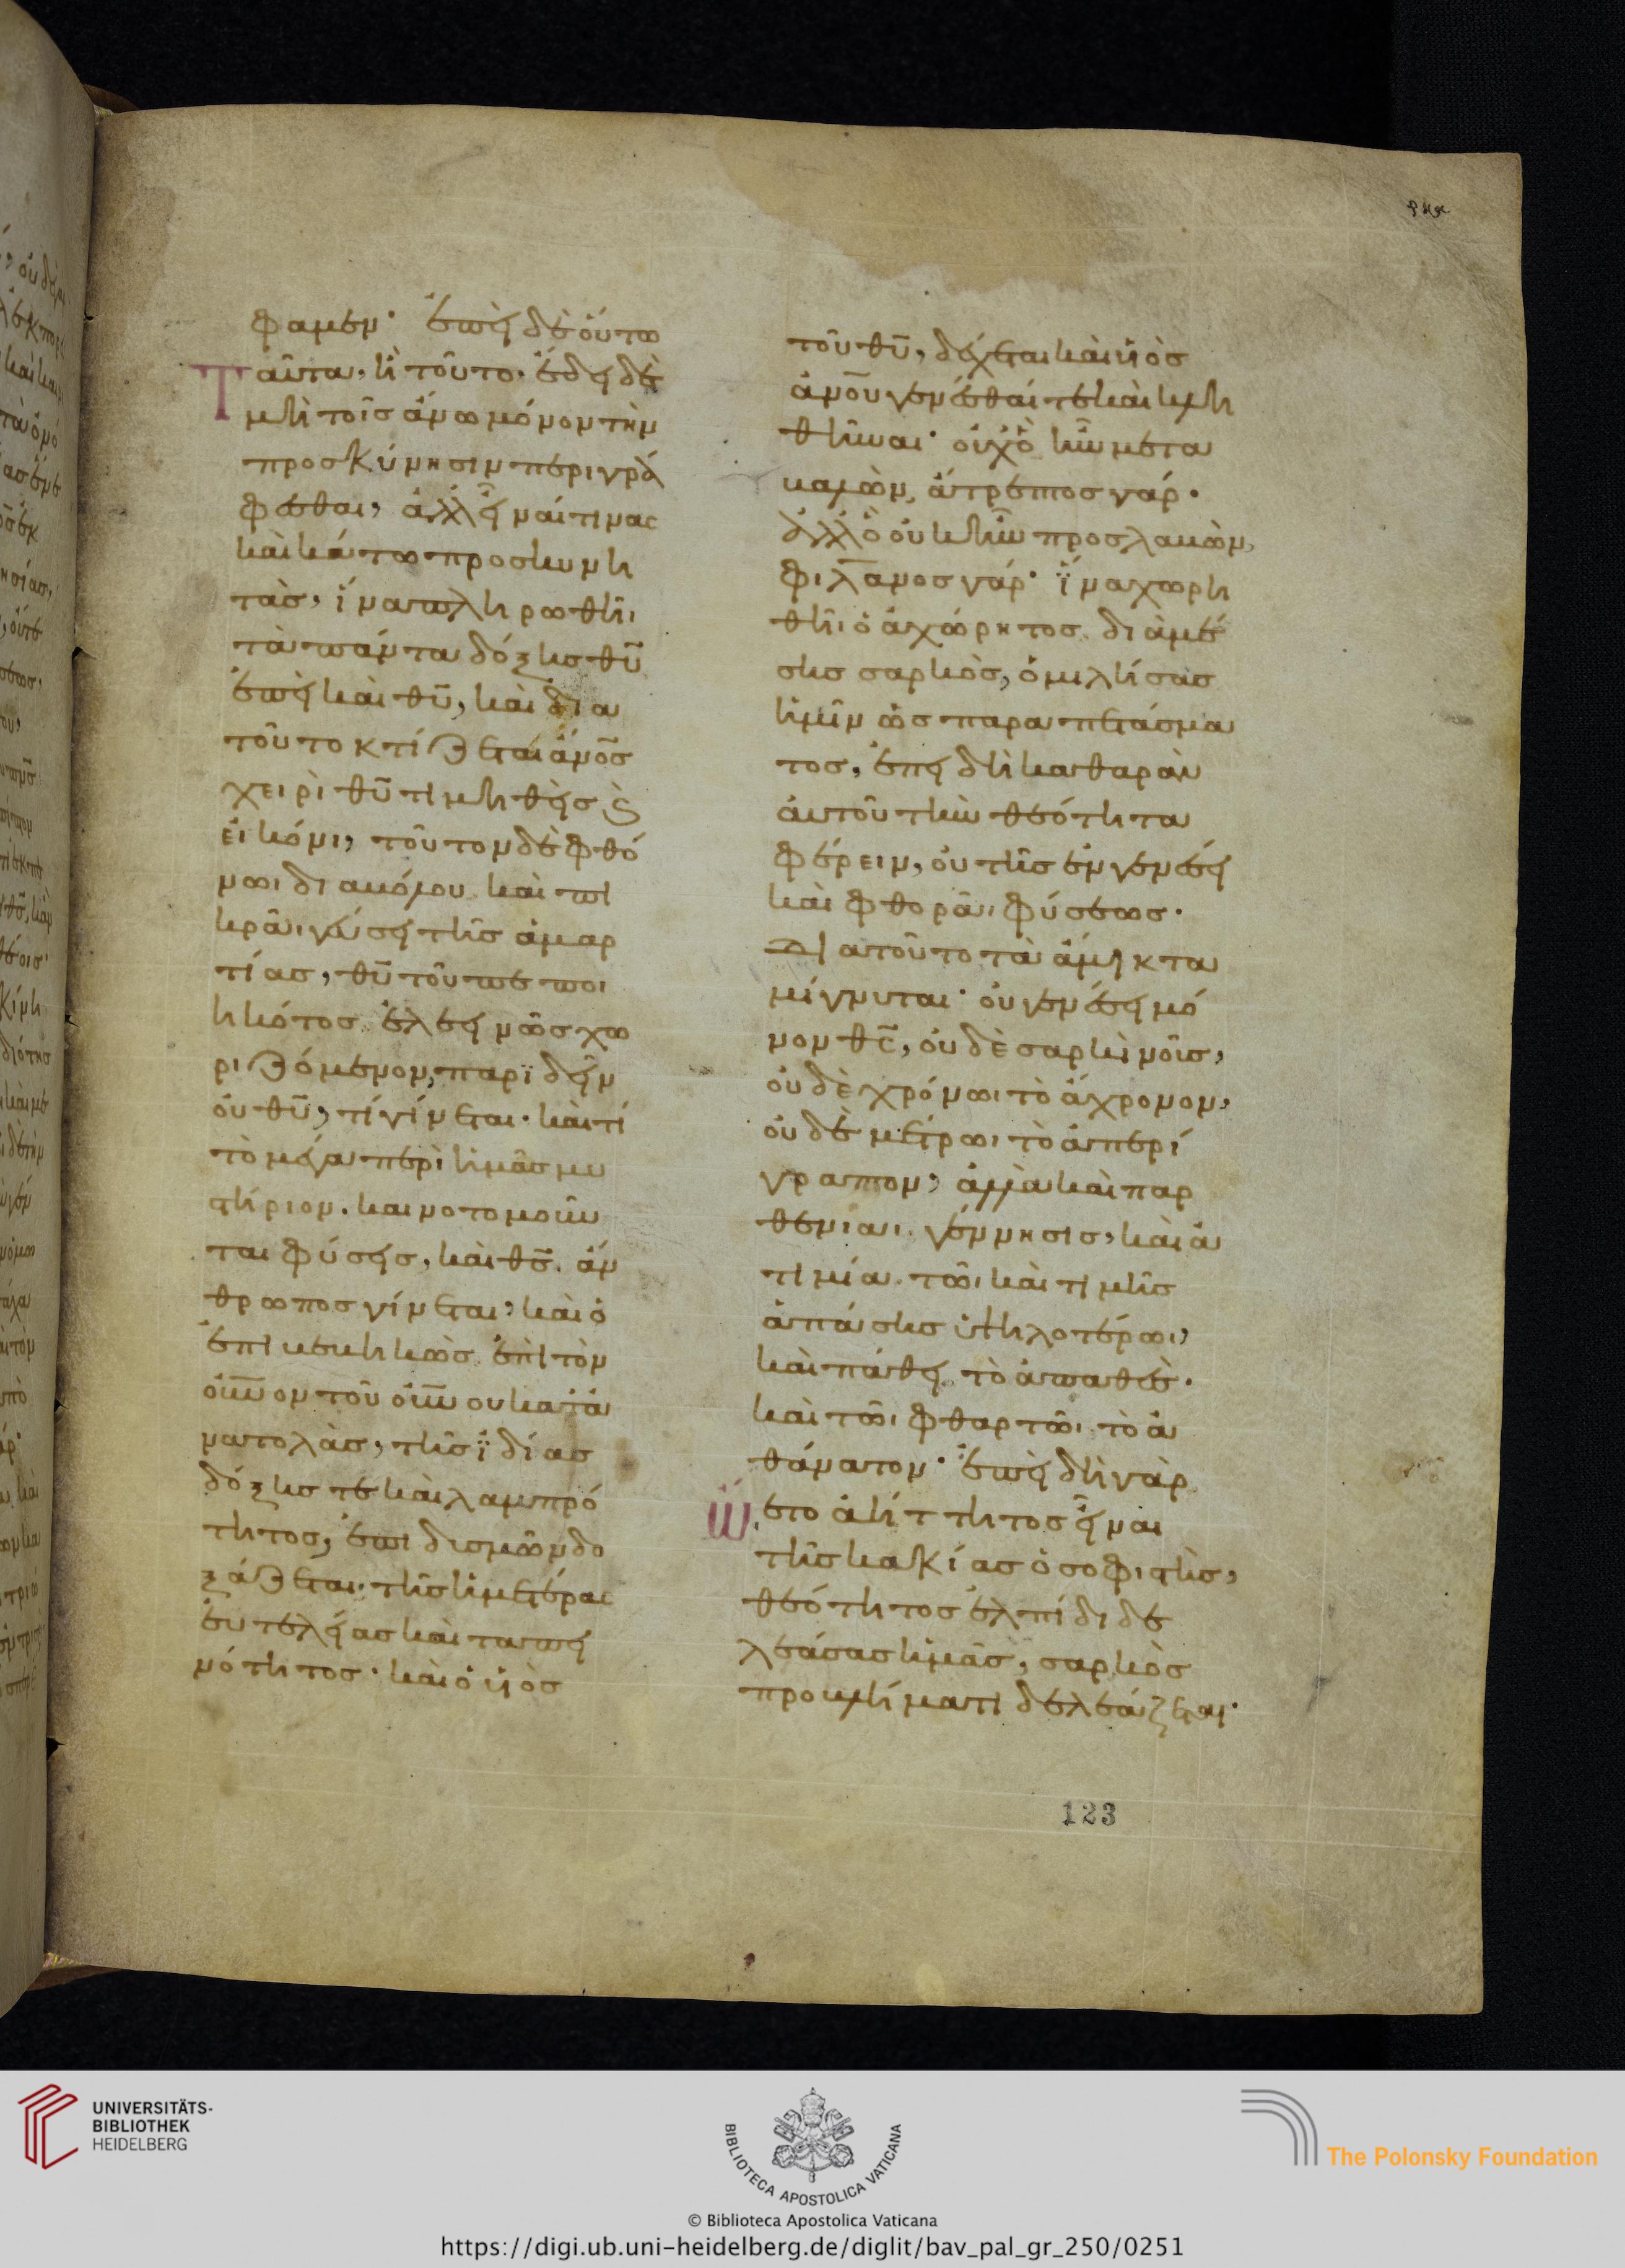 ρκγ
φαμεν· ἐπεὶ δὲ οὕτω
ταῦτα, ἢ τοῦτο· ἔδει δὲ
μὴ τοῖς ἄνω μόνον τὴν
προσκύνησιν περιγρά
φεσθαι, ἀλλ' εἶναί τινας
καὶ κάτω προσκυνη
τὰς, ἵνα πληρωθῆι
τὰ πάντα δόξης θῦ
ἐπεὶ καὶ θῦ, καὶ δια
τοῦτο κτίζεται ἄνος
χειρὶ θῦ τιμηθεὶς καὶ
εἰκόνι, τοῦτον δὲ φθό
νωι διαβόλου καὶ πι
κρᾶι γεύσει τῆς ἁμαρ
τίας, θῦ τοῦ πεποι
ηκότος ἐλεεινῶς χω
ριζόμενον, παριδεῖν
οὐ θῦ, τί γίνεται· καὶ τί
τὸ μέγα περὶ ἡμᾶς μυ
στήριον. καινοτομοῦν
ται φύσεις, καὶ θς ἄν
θρωπος γίνεται, καὶ ὁ
ἐπιβεβηκὼς ἐπὶ τὸν
οὐνον τοῦ οὐνου κατὰ ἀ
νατολὰς, τῆς ἰδίας
δόξης τε καὶ λαμπρό
τητος, ἐπὶ δυσμῶν δο
ξάζεται τῆς ἡμετέρας
εὐτελείας καὶ ταπει
νότητος· καὶ ὁ υἱὸς
τοῦ θῦ, δέχεται καὶ υἱὸς
ἀνου γενέσθαί τε καὶ κλη
θῆναι· οὐχ ὃ ἦν μετα
βαλὼν, ἄτρεπτος γάρ·
ἀλλ' ὃ οὐκ ἦν προσλαβὼν,
φιλανος γάρ· ἵνα χωρη
θῆι ὁ ἀχώρητος διὰ μέ
σης σαρκὸς, ὁμιλήσας
ἡμῖν ὡς παραπετάσμα
τος, ἐπεὶ δὴ καθαρὰν
αὐτοῦ τὴν θεότητα
φέρειν, οὐ τῆς ἐν γενέσει
καὶ φθορᾶι φύσεως·
Διατοῦτο τὰ ἄμικτα
μίγνυται· οὐ γενέσει μό
νον θς, οὐδὲ σαρκὶ νοῦς,
οὐδὲ χρόνωι τὸ ἄχρονον,
οὐδὲ μέτρωι τὸ ἀπερί
γραπτον, ἀλλὰ καὶ παρ
θενίαι γέννησις, καὶ ἀ
τιμία τῶι καὶ τιμῆς
ἁπάσης ὑψηλοτέρωι,
καὶ πάθει τὸ ἀπαθὲς·
καὶ τῶι φθαρτῶι τὸ ἀ
θάνατον· ἐπεὶ δὴ γὰρ
ὤιετο ἀήττητος εἶναι
τῆς κακίας ὁ σοφιστὴς,
θεότητος ἐλπίδι δε
λεάσας ἡμᾶς, σαρκὸς
προβλήματι δελεάζεται·
123
UNIVERSITÄTS-
BIBLIOTHEK
HEIDELBERG
BIBLIOTECA APOSTOLICA VATICANA
The Polonsky Foundation
© Biblioteca Apostolica Vaticana
https://digi.ub.uni-heidelberg.de/diglit/bav_pal_gr_250/0251